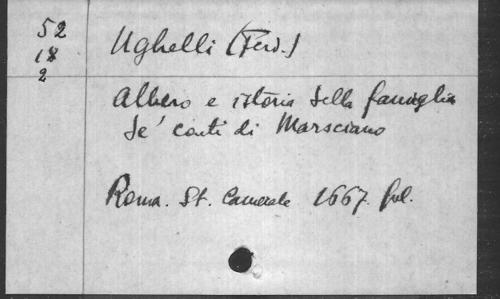 52
18
2
Ughelli (Ferd.)
Albero e istoria della famiglia
de' conti di Marsciano
Roma. St. Camerale 1667. fol.